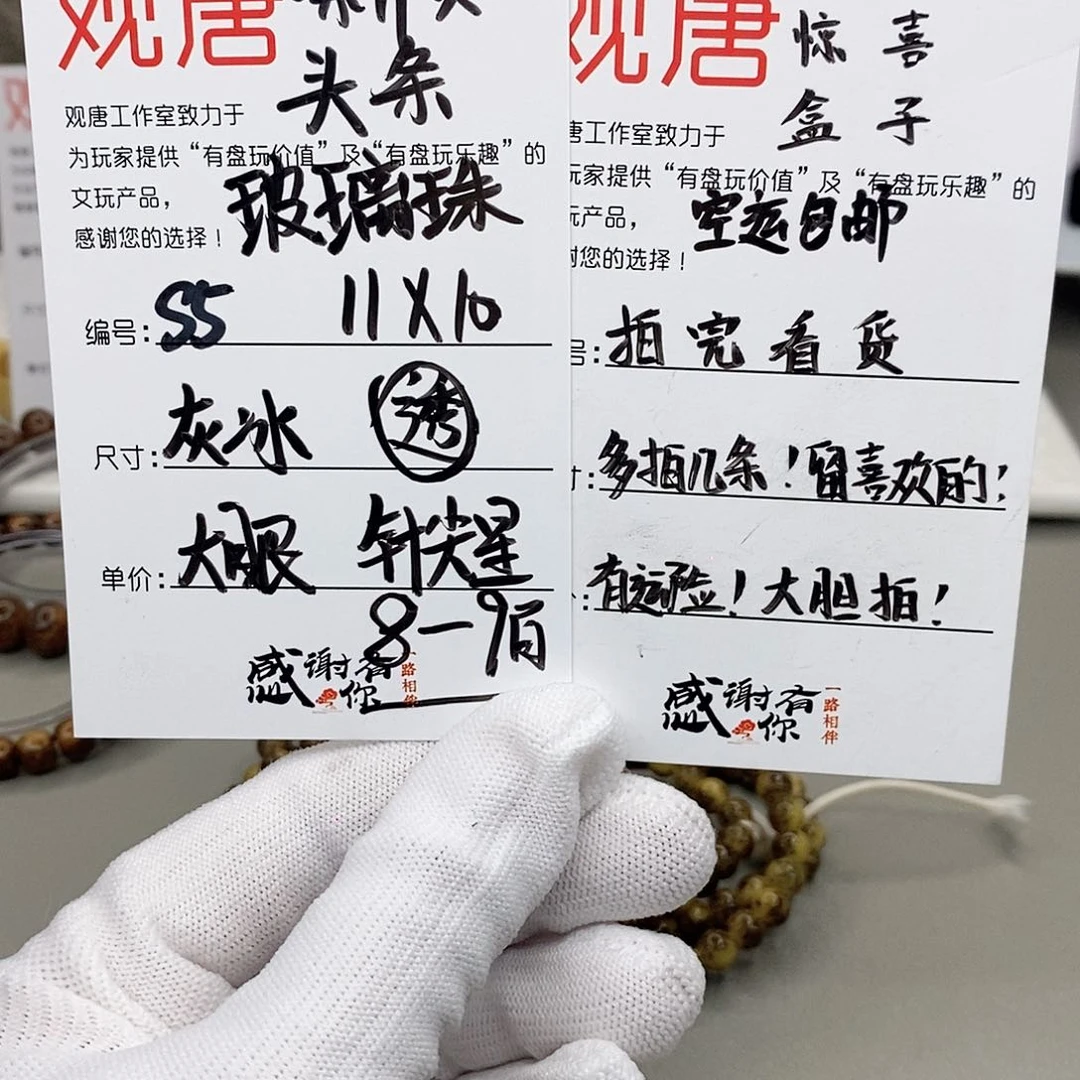 观唐
头条
观唐工作室致力于
为玩家提供“有盘玩价值”及“有盘玩乐趣”的
文玩产品，
玻璃珠
感谢您的选择！
编号：S5 11X10
尺寸：灰冰 透
单价：大眼 针尖星
8一9百
感谢有你
一路相伴
观唐
惊喜
盒子
唐工作室致力于
玩家提供“有盘玩价值”及“有盘玩乐趣”的
玩产品，
空运包邮
谢您的选择！
号：拍完看货
寸：多拍几条！留喜欢的！
：有运险！大胆拍！
感谢有你
一路相伴